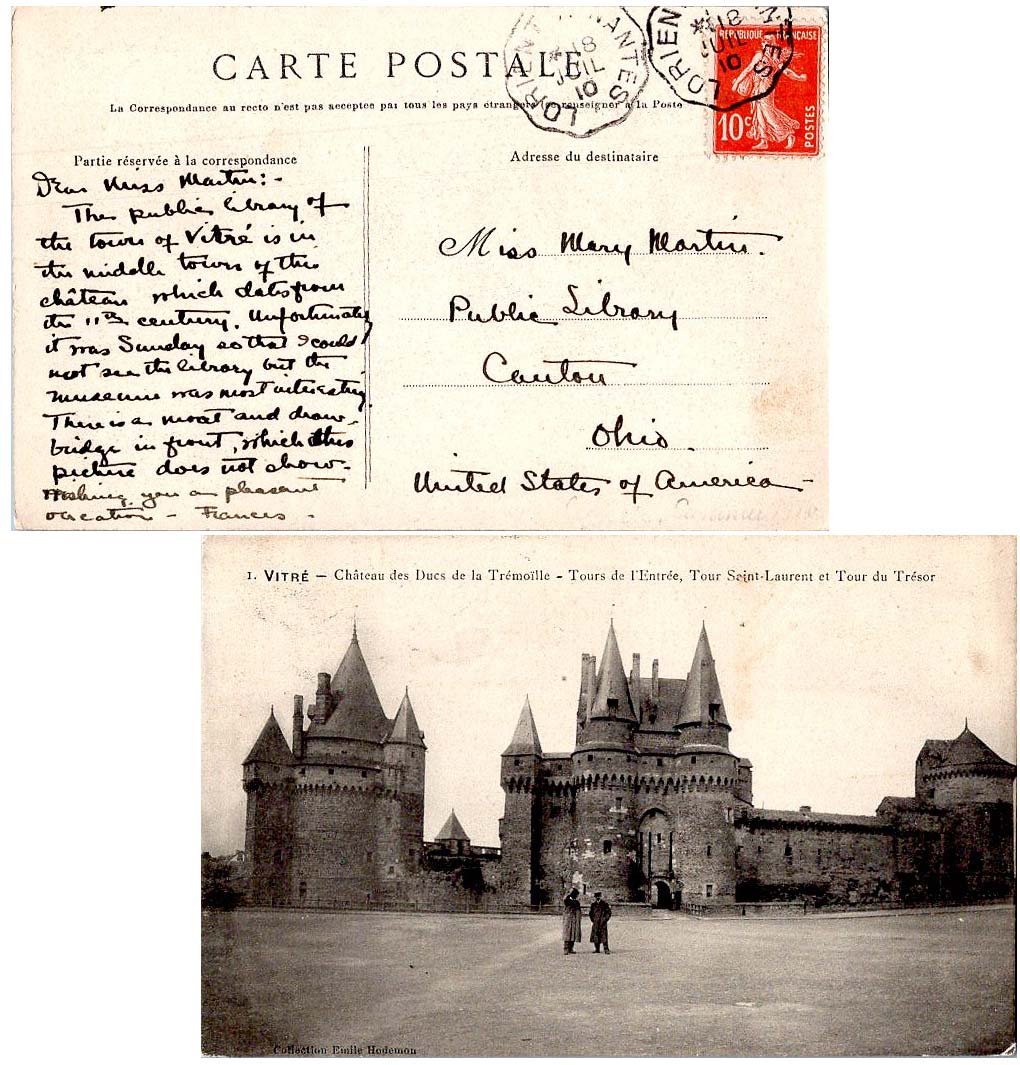 CARTE POSTALE
La Correspondance au recto n'est pas acceptee par tous les pays étrangers (se renseigner à la Poste
LORIENT NANTES
18
JUIL
10
LORIEN
18
JUIL
10
ES
REPUBLIQUE FRANÇAISE
10c
POSTES
Partie réservée à la correspondance
Dear Miss Martin:-
The public library of
the town of Vitré is in
the middle tower of this
château which dates from
the 11th century. Unfortunately
it was Sunday so that I could
not see the library but the
museum was most interesting.
There is a moat and draw-
bridge in front, which this
picture does not show-
Wishing you a pleasant
vacation - Frances -
Adresse du destinataire
Miss Mary Martin.
Public Library
Canton
Ohio.
United States of America -
1. VITRÉ — Château des Ducs de la Trémoïlle - Tours de l'Entrée, Tour Saint-Laurent et Tour du Trésor
Collection Emile Hodemon